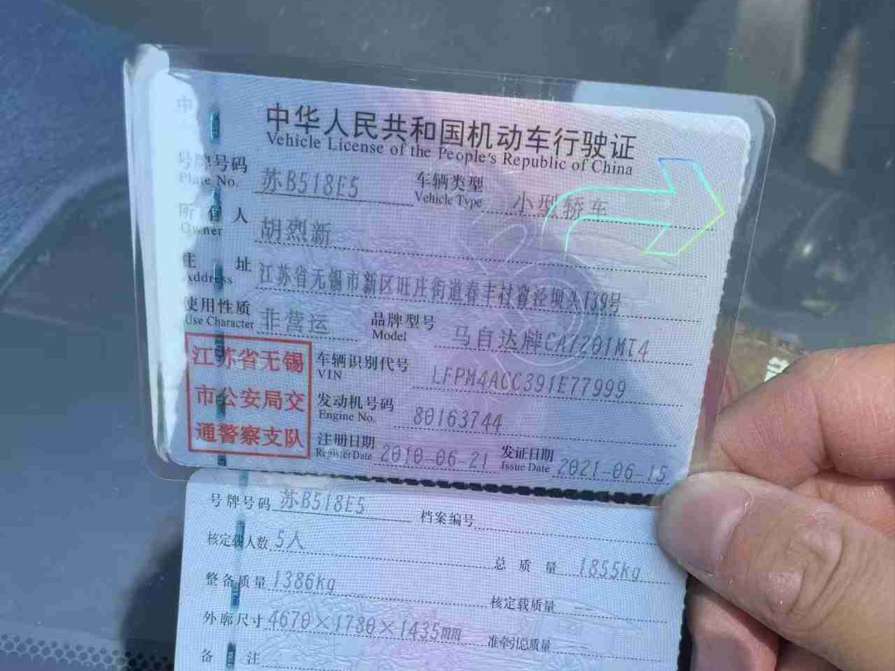 中华人民共和国机动车行驶证
Vehicle License of the People's Republic of China
号牌号码 苏B518E5 车辆类型 小型轿车
Plate No. Vehicle Type
所有人 胡烈新
Owner
住 址 江苏省无锡市新区旺庄街道春丰村
Address
使用性质 非营运 品牌型号 马自达牌CA7201MT4
Use Character Model
江苏省无锡
市公安局交
通警察支队
车辆识别代号 LFPM4ACC391E77999
VIN
发动机号码 80163744
Engine No.
注册日期 2010-06-21 发证日期 2021-06-15
Register Date Issue Date
号牌号码 苏B518E5 档案编号
核定载人数 5人 总质量 1855kg
整备质量 1386kg 核定载质量 --
外廓尺寸 4670×1780×1435mm 准牵引总质量 --
备 注